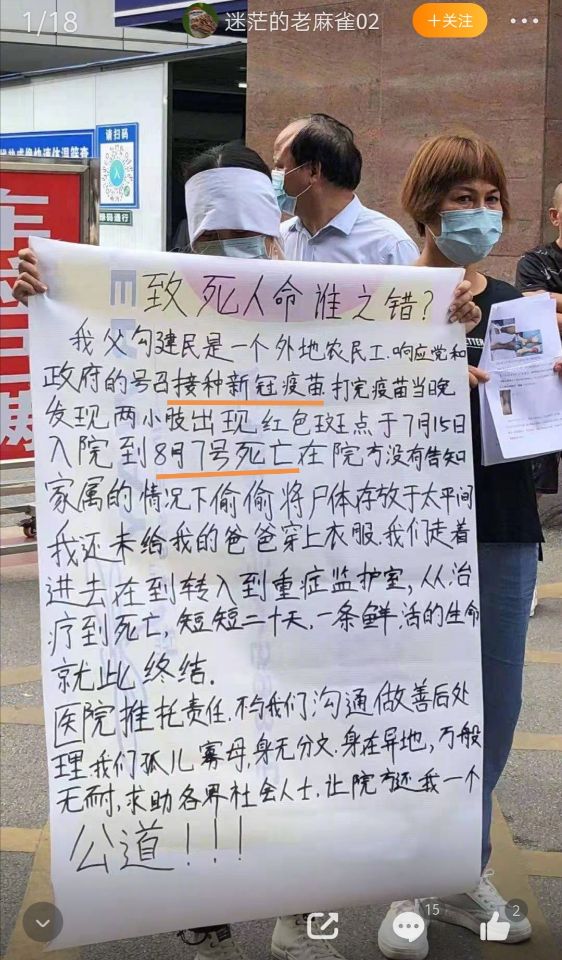 1/18
迷茫的老麻雀02
+关注
请扫码
致死人命谁之错?
我父勾建民是一个外地农民工.响应党和
政府的号召接种新冠疫苗打完疫苗当晚
发现两小肢出现红色斑点于7月15日
入院到8月7号死亡在院方没有告知
家属的情况下偷偷将尸体存放于太平间
我还未给我的爸爸穿上衣服.我们走着
进去在到转入到重症监护室,从治
疗到死亡,短短二十天.一条鲜活的生命
就此终结.
医院推托责任.不与我们沟通做善后处
理.我们孤儿寡母,身无分文.身在异地,万般
无耐,求助各界社会人士.让院方还我一个
公道!!!
15
2